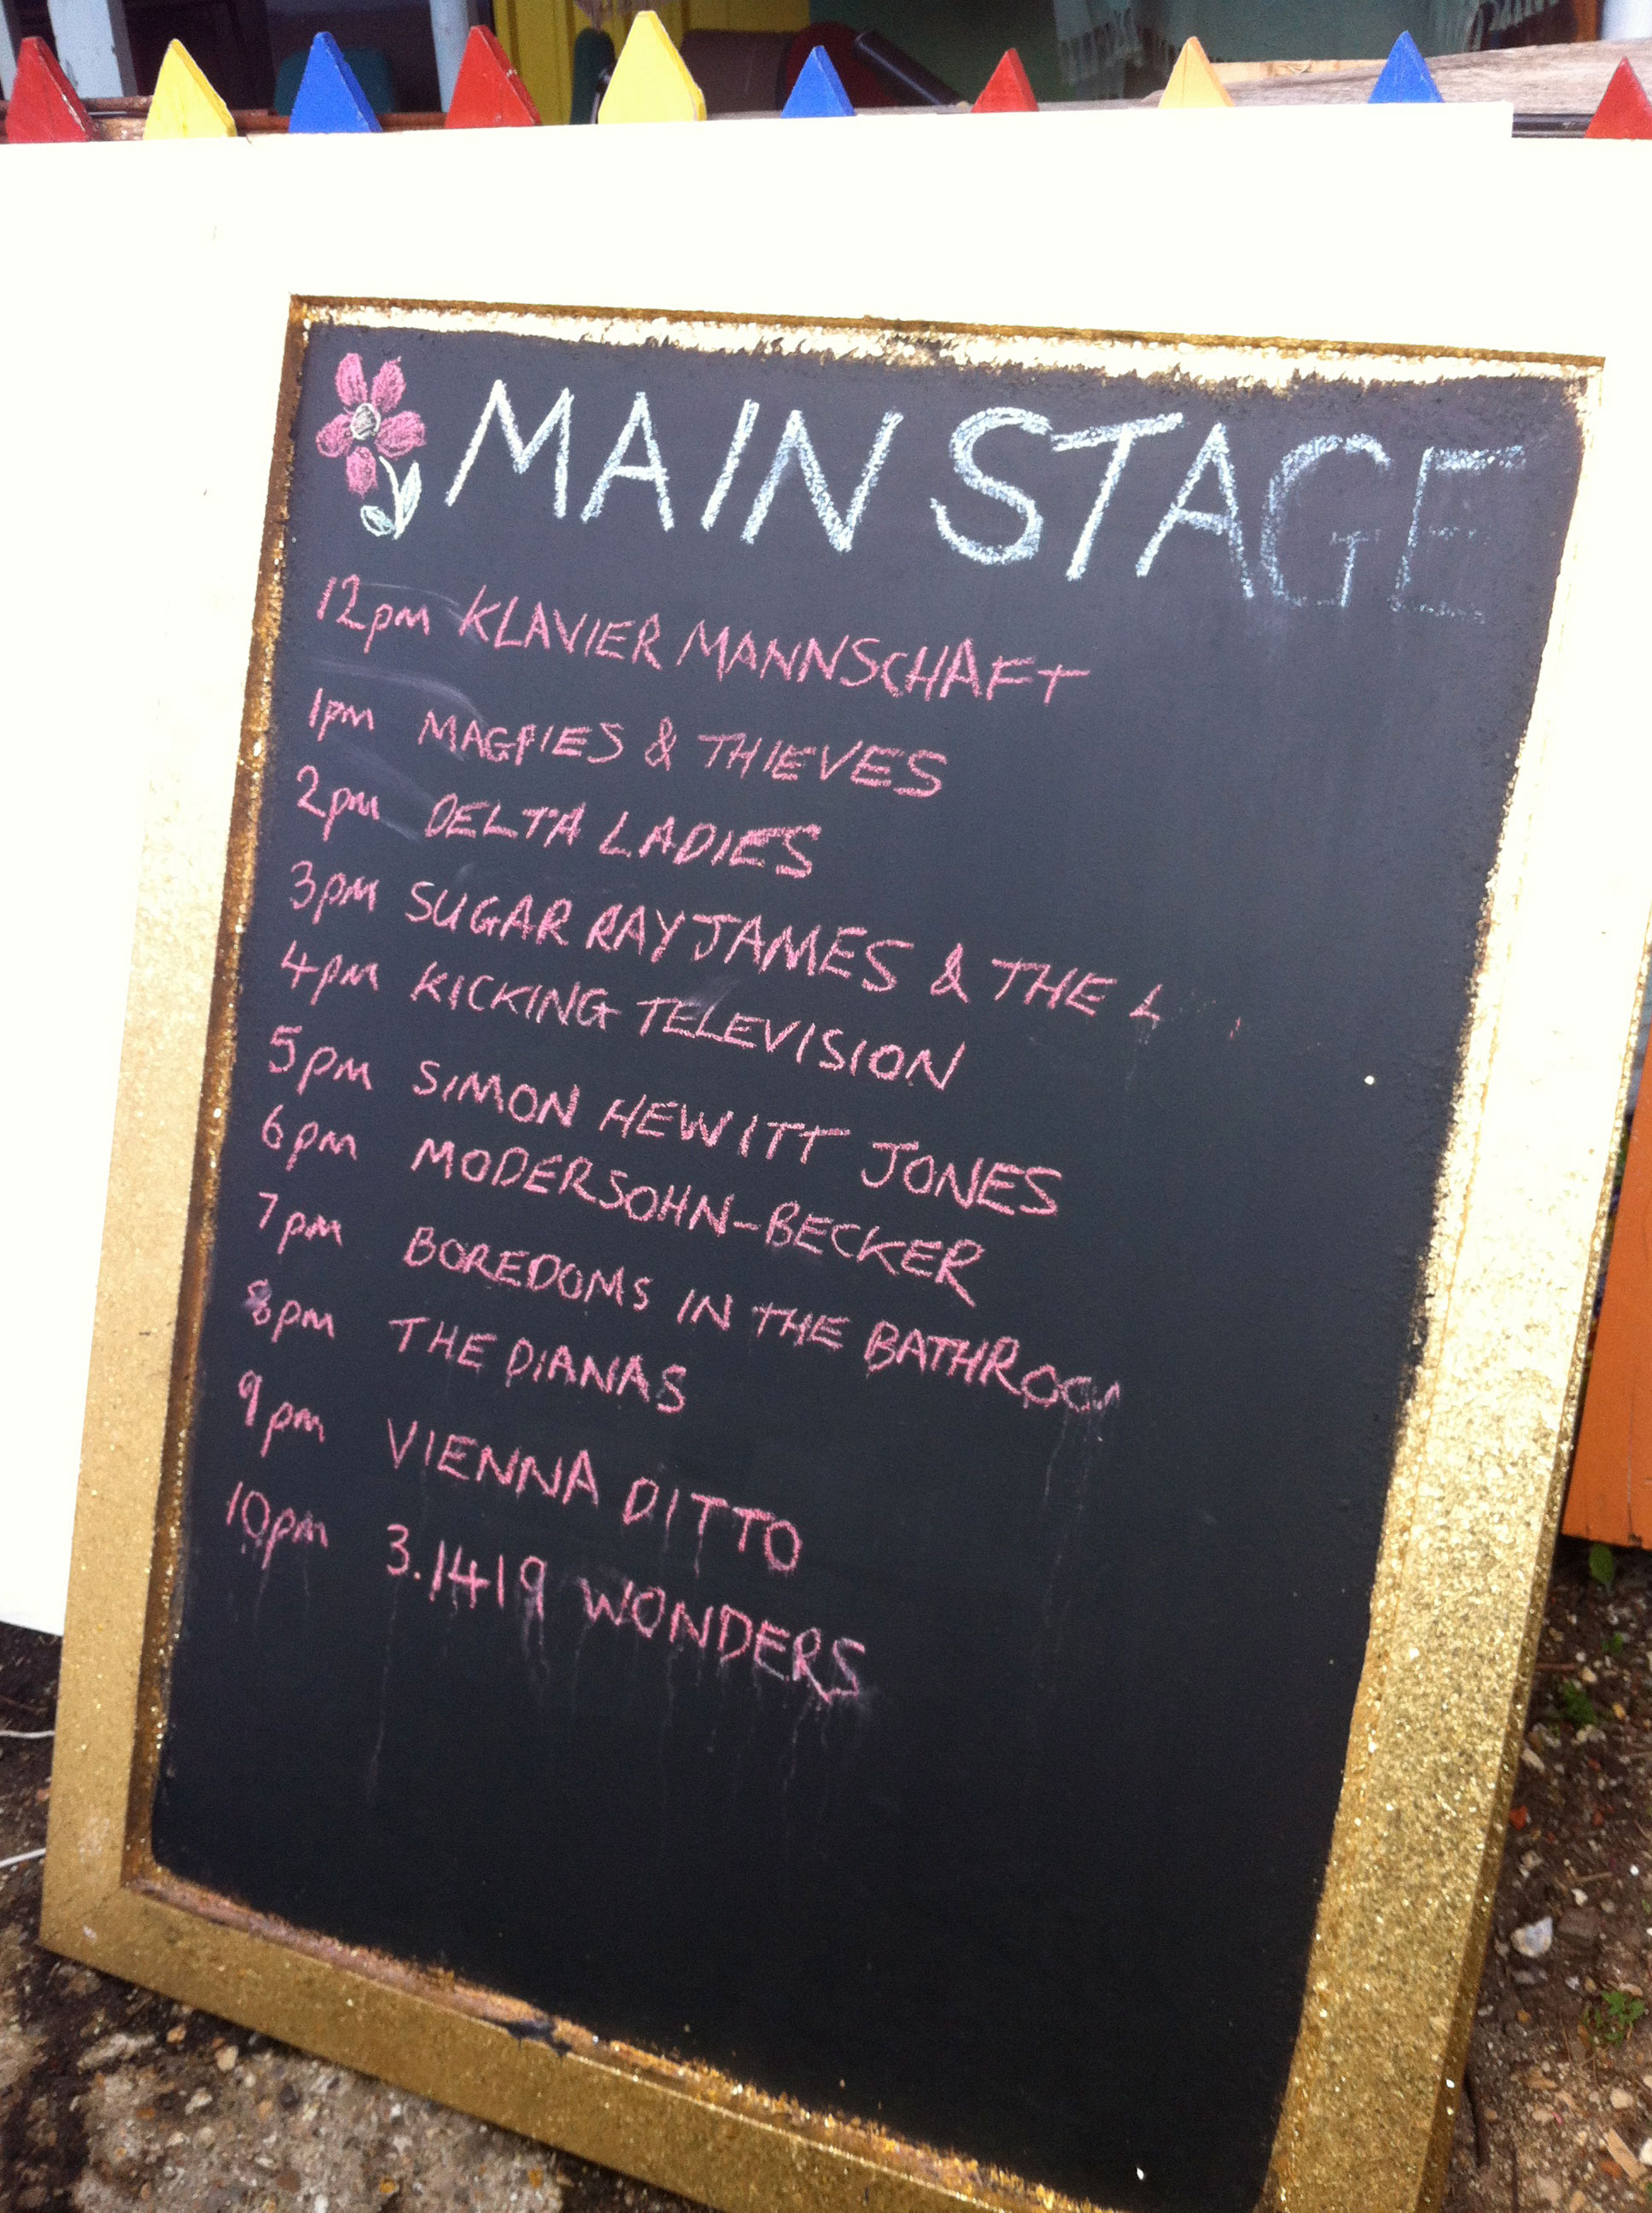 MAIN STAGE
12pm KLAVIER MANNSCHAFT
1pm MAGPIES & THIEVES
2pm DELTA LADIES
3pm SUGAR RAY JAMES & THE L
4pm KICKING TELEVISION
5pm SIMON HEWITT JONES
6pm MODERSOHN-BECKER
7pm BOREDOMS IN THE BATHROOM
8pm THE DIANAS
9pm VIENNA DITTO
10pm 3.1419 WONDERS